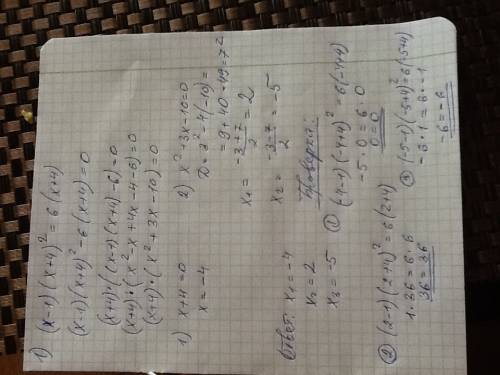 1) (x-1)(x+4)² = 6(x+4)
(x-1)(x+4)² - 6(x+4) = 0
(x+4)·((x-1)(x+4)-6) = 0
(x+4)·(x²-x+4x-4-6) = 0
(x+4)·(x²+3x-10) = 0
1) x+4=0
x=-4
2) x²+3x-10=0
D=3²-4(-10)=
=9+40=49=7²
x₁ = (-3+7)/2 = 2
x₂ = (-3-7)/2 = -5
Ответ: x₁=-4
x₂=2
x₃=-5
Проверка:
① (-4-1)(-4+4)²=6(-4+4)
-5·0=6·0
0=0
② (2-1)(2+4)²=6(2+4)
1·36=6·6
36=36
③ (-5-1)(-5+4)²=6(-5+4)
-6·1=6·-1
-6=-6